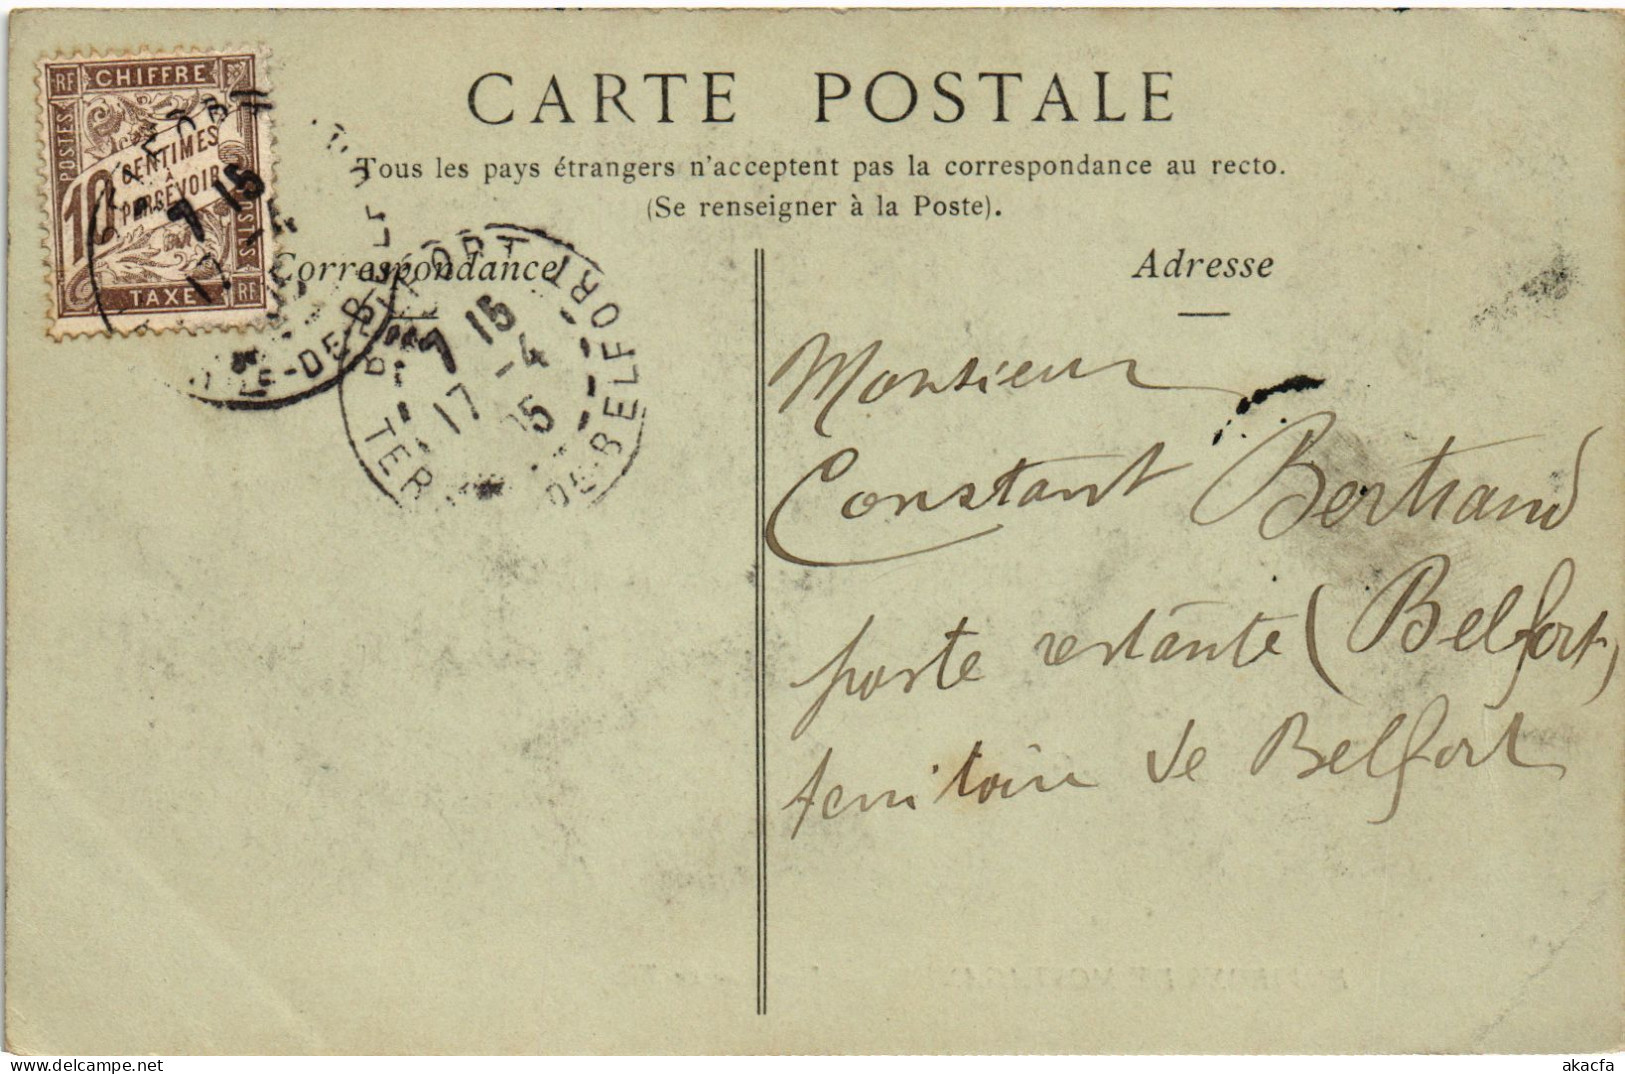 RF CHIFFRE
POSTES
10 CENTIMES
À
PERCEVOIR
POSTES
TAXE RF
CARTE POSTALE
Tous les pays étrangers n'acceptent pas la correspondance au recto.
(Se renseigner à la Poste).
Correspondance
Adresse
BELFORT
7 15
17 -4
05
TER DE-BELFORT
7 15
17
Monsieur
Constant Bertrand
poste restante (Belfort)
territoire de Belfort
akacfa